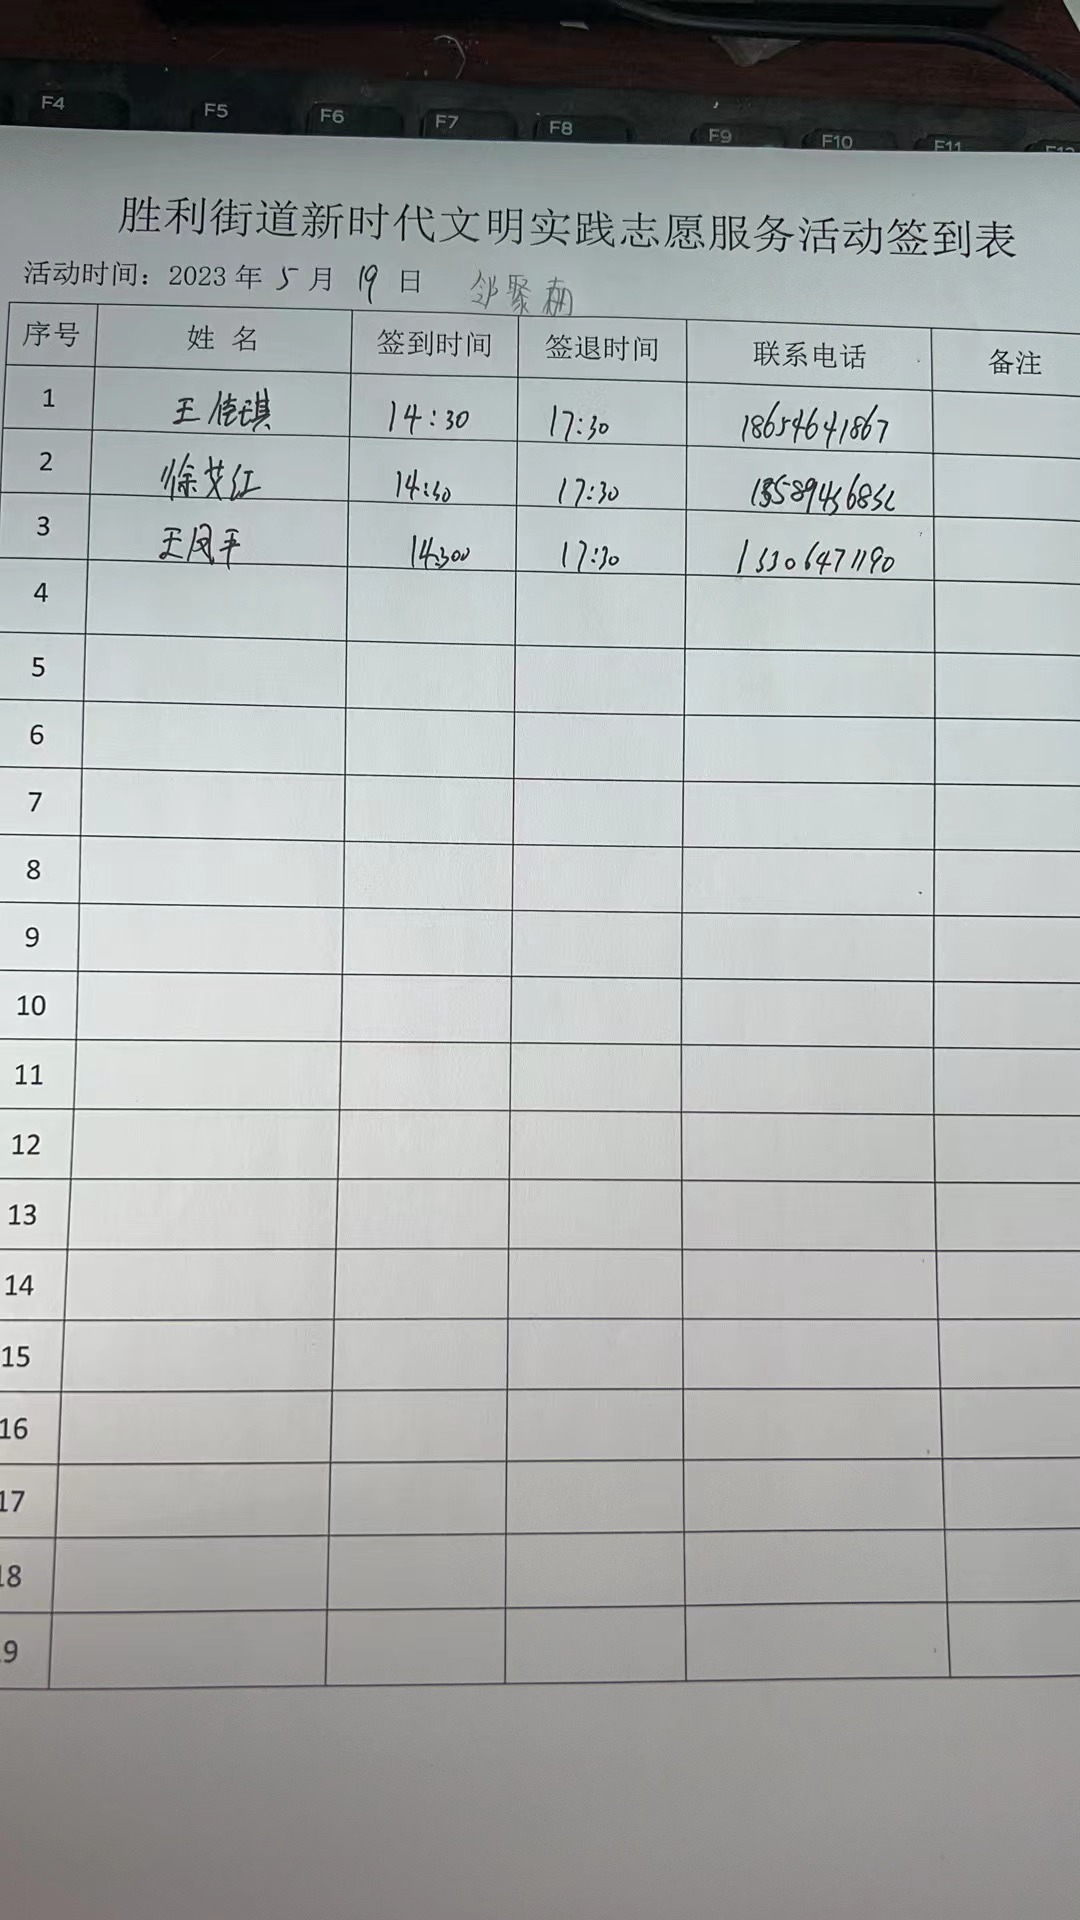 F4 F5 F6 F7 F8 F9 F10 F11 F12
胜利街道新时代文明实践志愿服务活动签到表
活动时间：2023 年 5 月 19 日 邻聚
序号 姓 名 签到时间 签退时间 联系电话 备注
1 王佳琪 14:30 17:30 18654641867
2 徐艾红 14:30 17:30
3 王凤平 17:30 13306471190
4
5
6
7
8
9
10
11
12
13
14
15
16
17
18
19